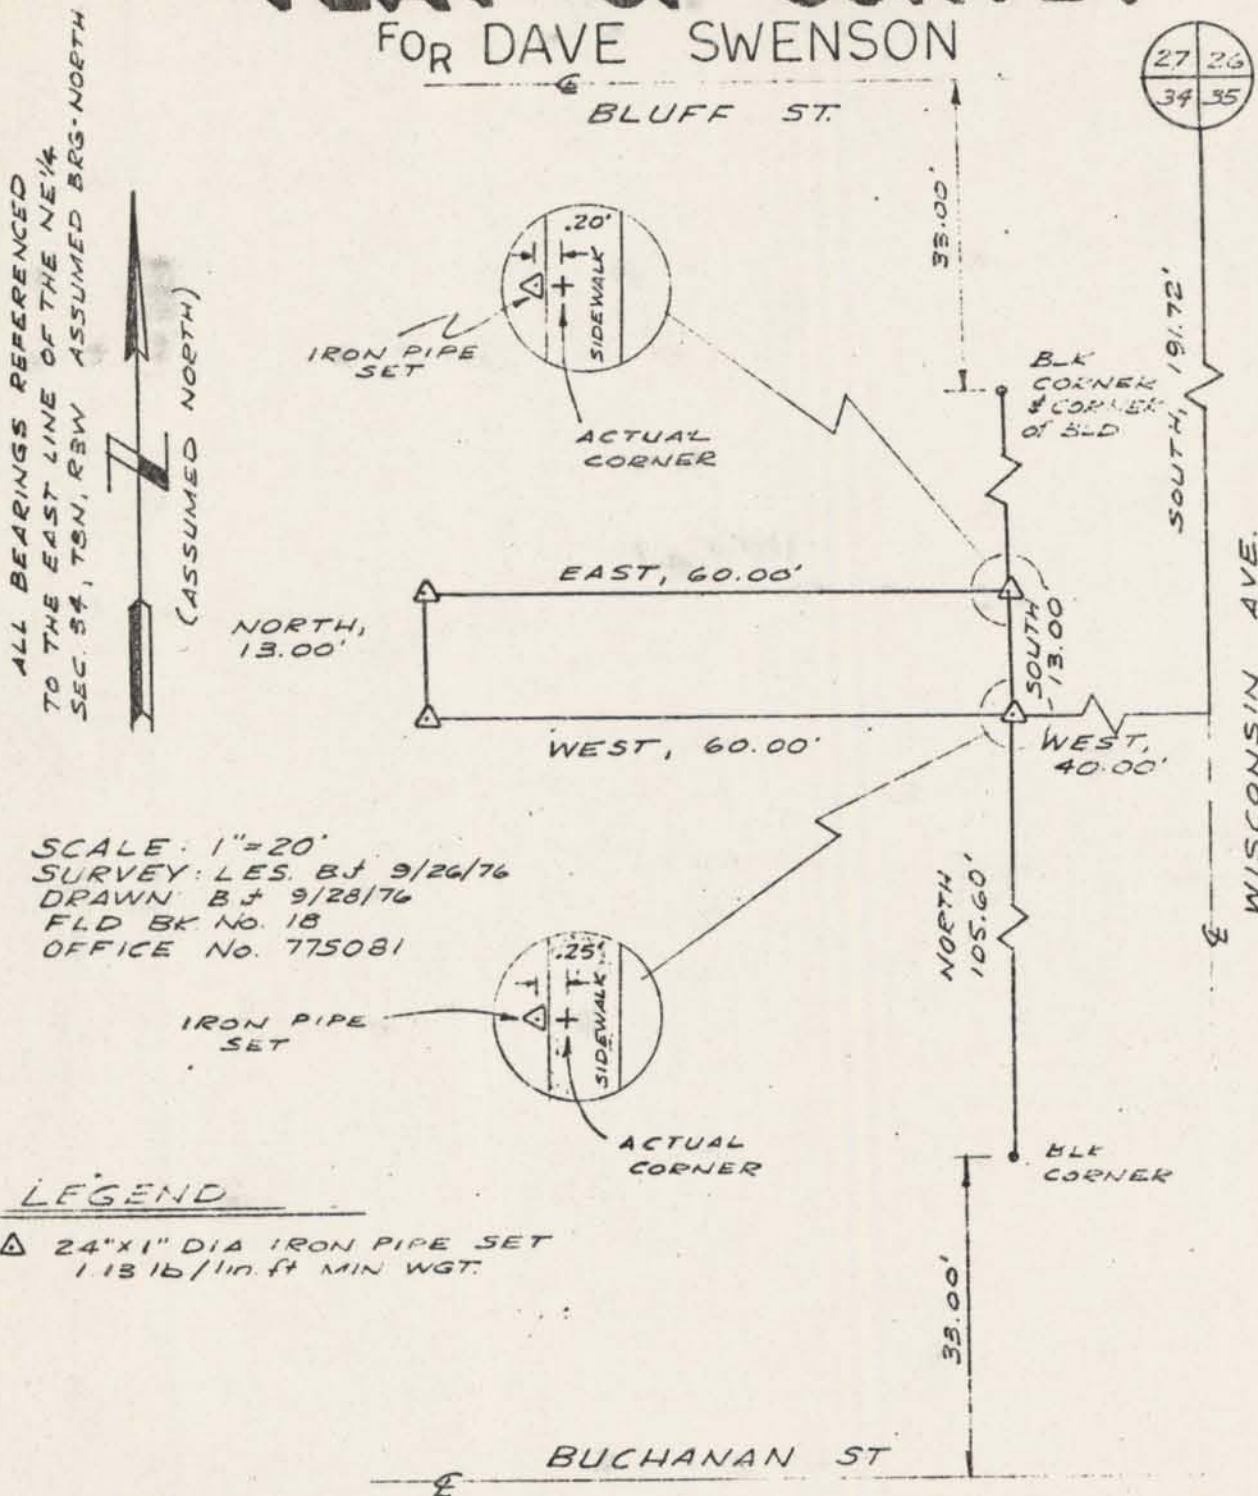 FOR DAVE SWENSON
27 26
34 35
℄
BLUFF ST.
ALL BEARINGS REFERENCED
TO THE EAST LINE OF THE NE¼
SEC. 34, T8N, R3W ASSUMED BRG-NORTH
(ASSUMED NORTH)
33.00'
.20'
SIDEWALK
IRON PIPE
SET
ACTUAL
CORNER
BLK
CORNER
& CORNER
of BLD
SOUTH, 191.72'
EAST, 60.00'
NORTH,
13.00'
SOUTH
13.00'
WEST, 60.00'
WEST,
40.00'
WISCONSIN AVE.
℄
SCALE: 1"=20'
SURVEY: LES. BJ 9/26/76
DRAWN BJ 9/28/76
FLD BK No. 18
OFFICE No. 775081
NORTH
105.60'
.25'
SIDEWALK
IRON PIPE
SET
ACTUAL
CORNER
BLK
CORNER
LEGEND
24"X1" DIA IRON PIPE SET
1.13 lb/lin. ft MIN WGT.
33.00'
BUCHANAN ST
℄